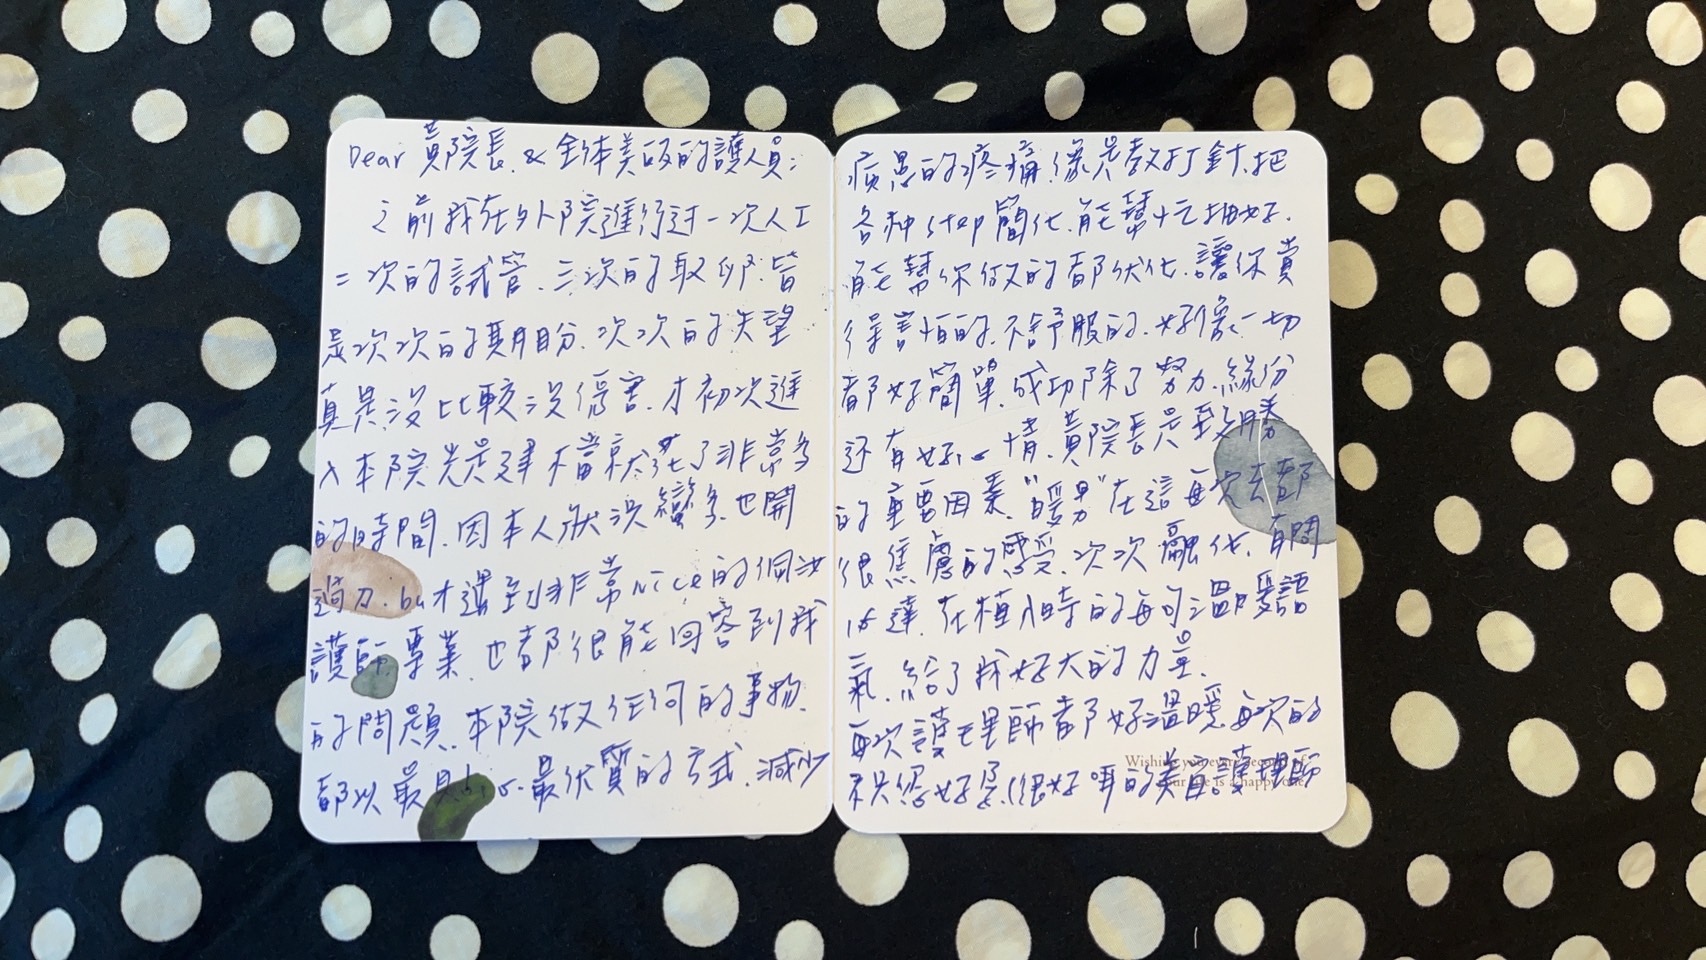 Dear 黃院長 & 全体美的護人員：
之前我在外院進行过一次人工
二次的試管、三次的取卵、皆
是次次的期盼、次次的失望
真是沒比較沒傷害、才初次進
入本院光是建檔就花了非常多
的時間、因本人狀況蠻多、也開
過刀、but遇到非常nice的個
護師、專業、也都很能回答到我
的問題、本院做任何的事物、
都以最貼心、最优質的方式、減少
病患的疼痛、像是教打針、把
各种step簡化、能幫忙抽好、
能幫你做的都优化、讓你賞
得害怕的、不舒服的、好像一切
都好簡單、成功除了努力、緣份
还有好心情、黃院長是致勝
的重要因素、"暖男"在這每次去都
很焦慮的感受、次次融化、有問
必達、在植入時的每句溫暖語
氣、給了我好大的力量、
每次護理師都好溫暖、每次的
很好的美自護理師
Wishing you every
is a happy one